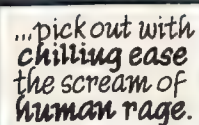 ...pick out with
chilling ease
the scream of
human rage.